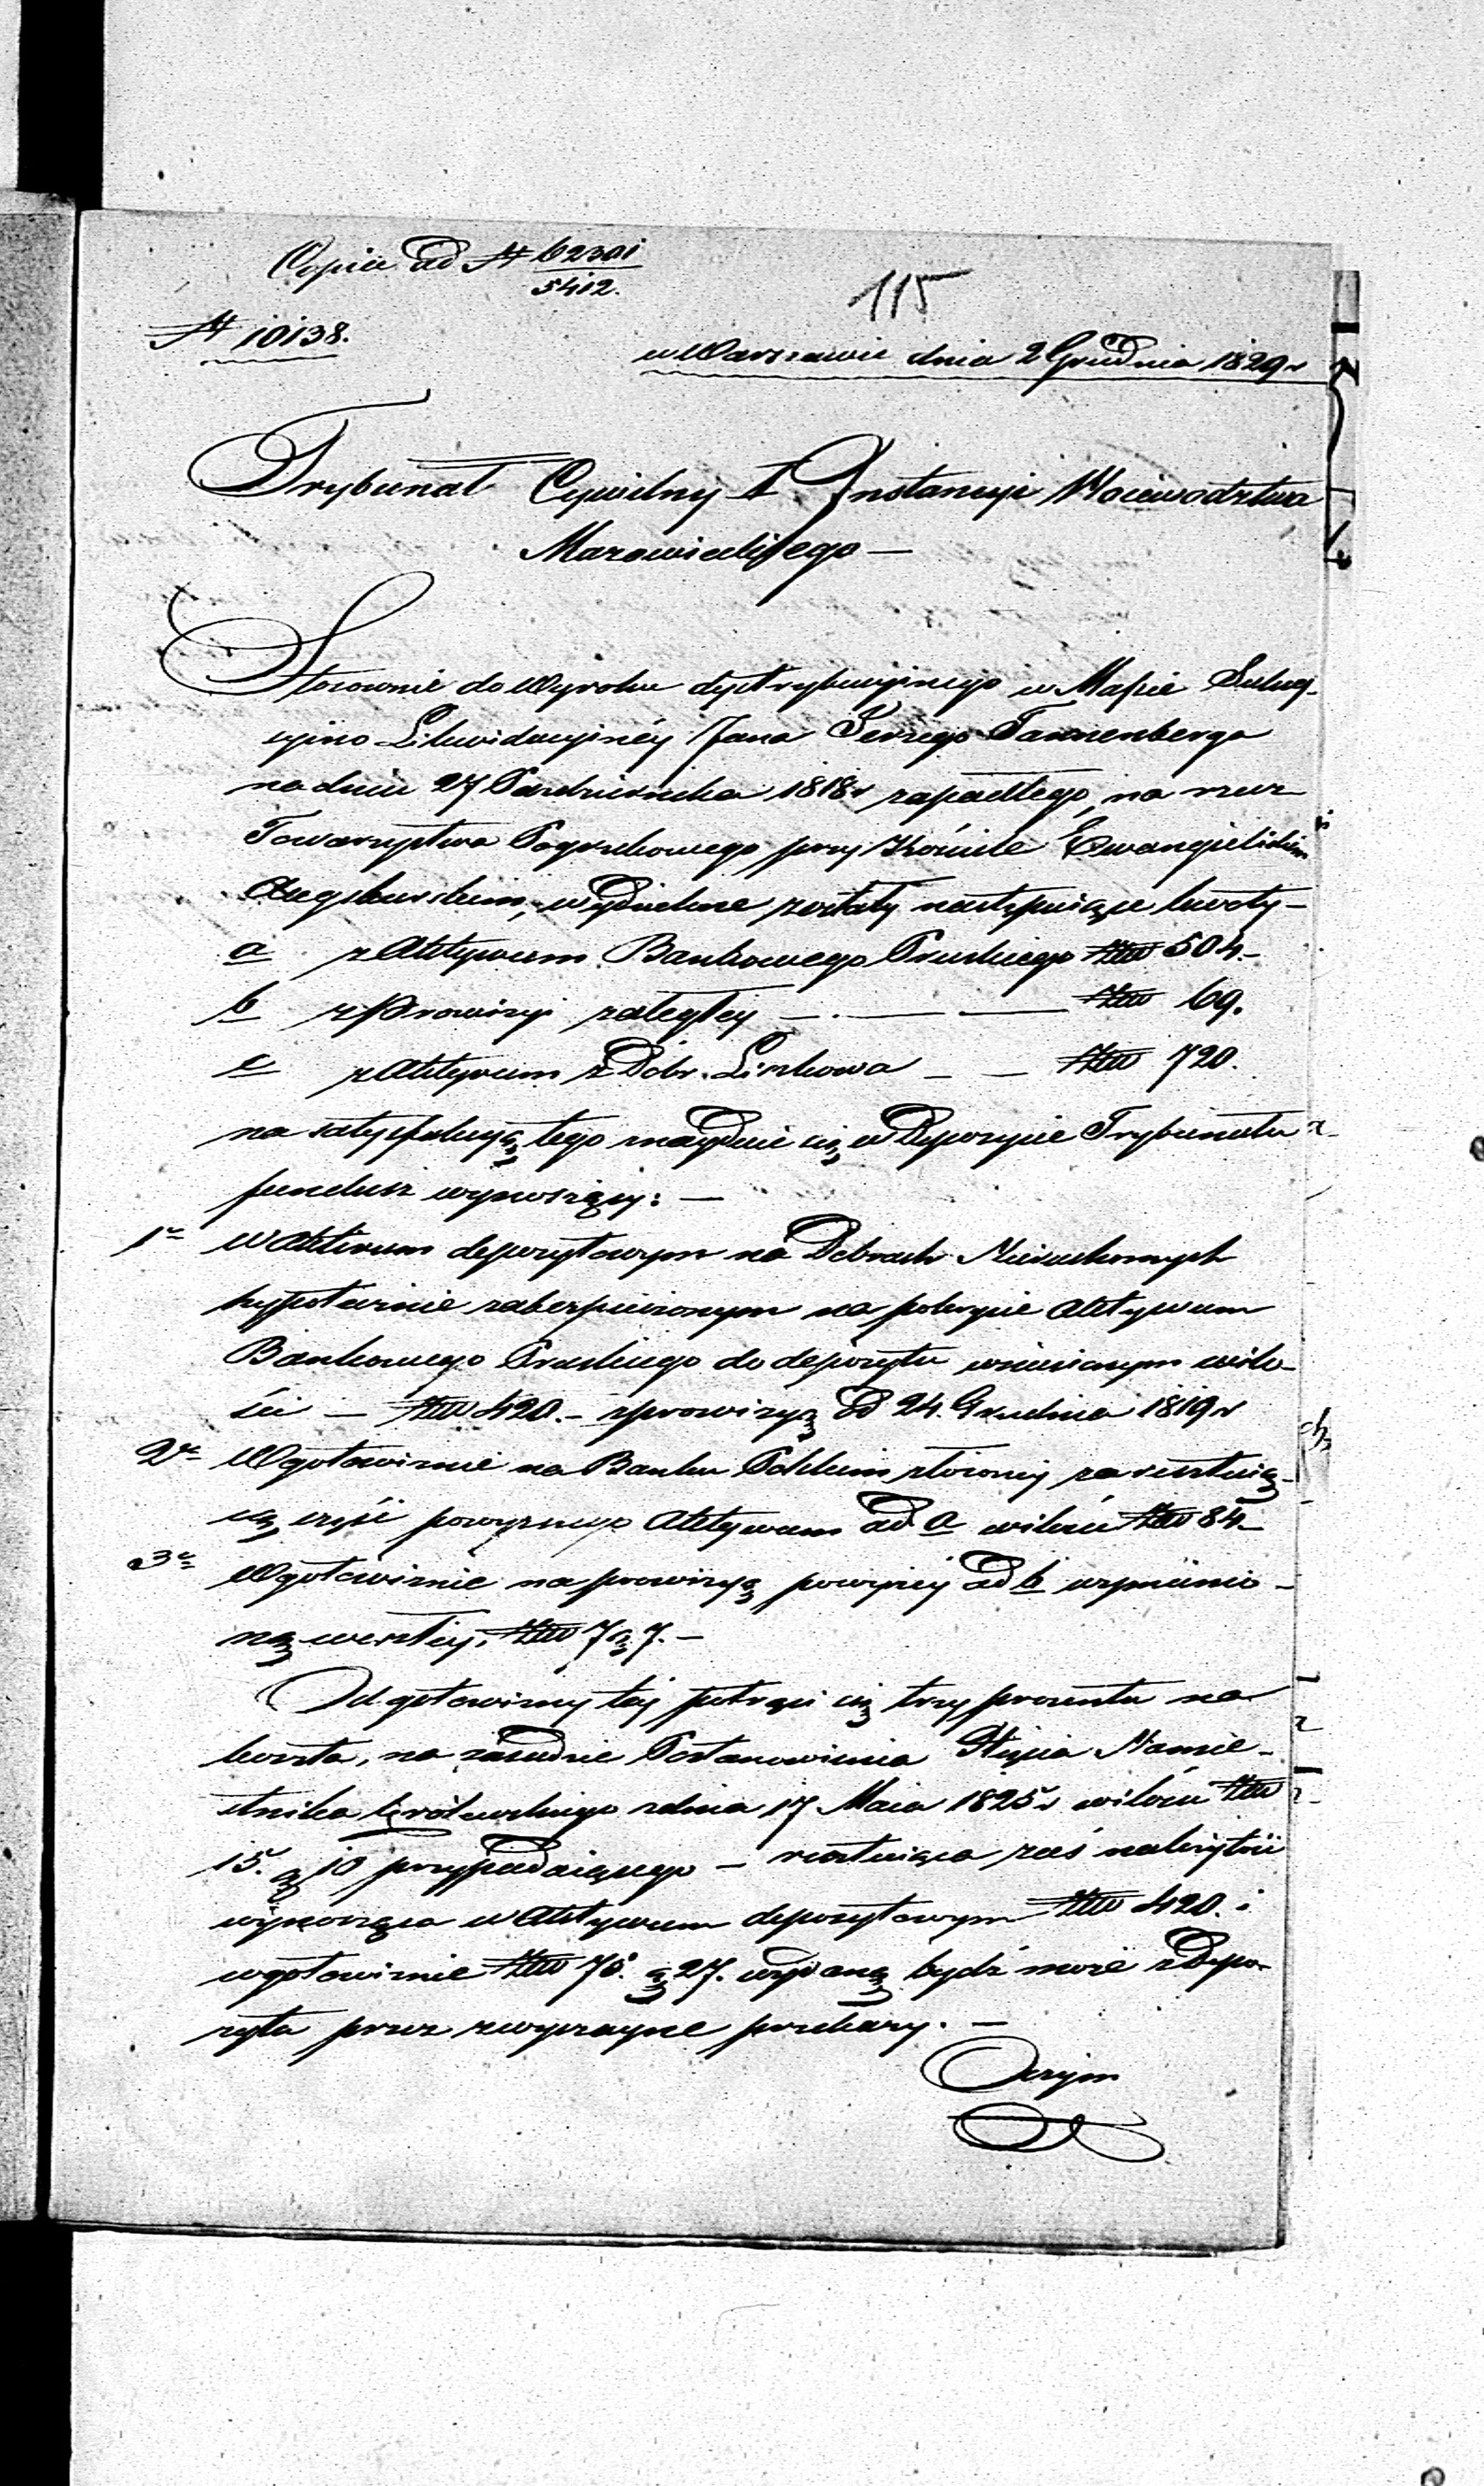 Copia ad N 62301
5412.
115
N 10138.
w Warszawie dnia 2 Grudnia 1829 r
Trybunał Cywilny I Instancyi Woiewodztwa
Mazowieckiego —
Stosownie do Wyroku dystrybucyinego w Massie Sukces-
syino Likwidacyinéy Jana Jerzego Tannenberga
na dniu 27 Pazdziernika 1818 r zapadłego, na rzecz
Towarzystwa Pogrzebowego przy Kościele Ewangielickim
Augsburskim, wydzielone zostały następuiące kwoty —
a z Aktywum Bankowego Pruskiego 504 —
b z Prowizyi zaległey — . — — 69.
c z Aktywum z Dóbr. Liszkowa — — 720.
na satysfakcyą tego znayduie się w Depozycie Trybunału
fundusz wynoszący: —
1e w Aktivum depozytowym na Dobrach Nieruchomych
hypotecznie zabezpieczonym na pokrycie Aktywum
Bankowego Pruskiego do depozytu wniesionym w ilo-
ści — 420. — z prowizyą od 24. Grudnia 1819 r
2e W gotowiznie na Banku Polskim złożoney za resztuią-
cą część powyższego Aktywum ad a w ilości 84 —
3e W gotowiznie na prowizyą powyżey ad b wzmienio-
ną weszłey, 7 g 7. —
Od gotowizny téy potrąci się trzy procenta na
koszta, na zasadzie Postanowienia Xięcia Namie-
stnika Królewskiego z dnia 17 Maia 1825 r w ilości
15. g 10 przypadaiącego — resztuiąca zaś należytość
wynosząca w Aktywum depozytowym 420. i
w gotowiznie 75. g 27. wydaną bydź może z Depo-
zytu przez zwyczayne przekazy. —